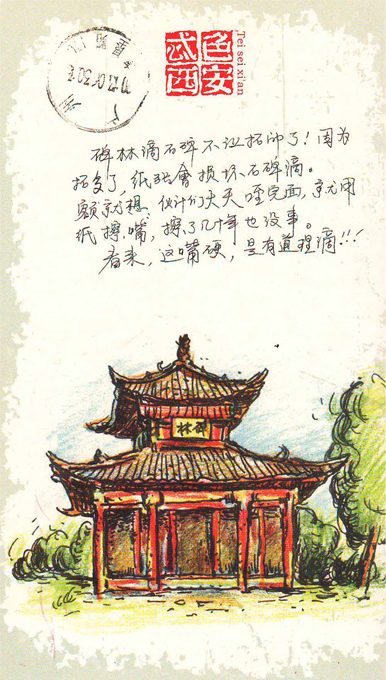 忒色
西安
Tei sei xi'an
碑林滴石碑不让拓印了!因为
拓多了,纸张會损坏石碑滴。
额就想,伙计们天天咥完面,就用
纸擦嘴,擦了几十年也没事。
看来,这嘴硬,是有道理滴!!!
碑林